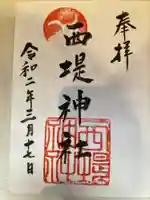 奉拝
西堤神社
令和二年三月十七日
西堤神社